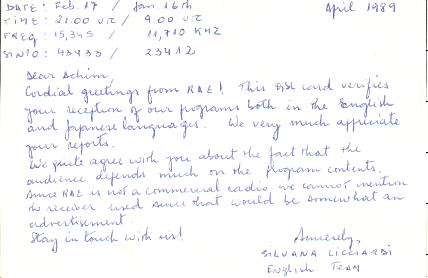 DATE: Feb. 17 / Jan. 16th April 1989
TIME: 21.00 UTC / 9.00 UTC
FREQ: 15,345 / 11,710 KHZ
SINPO: 43433 / 23412
Dear Achim,
Cordial greetings from RAE! This QSL card verifies
your reception of our programs both in the English
and Japanese languages. We very much appreciate
your reports.
We quite agree with you about the fact that the
audience depends much on the program contents.
Since RAE is not a commercial radio we cannot mention
the receiver used since that would be somewhat an
advertisement.
Stay in touch with us!
Sincerely,
SILVANA LICCIARDI
English TEAM